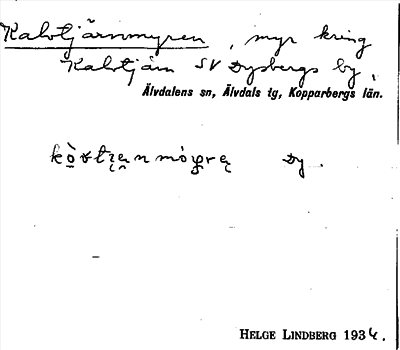 Kalvtjärnmyren, myr kring
Kalvtjärn SV Dysbergs by,
Älvdalens sn, Älvdals tg, Kopparbergs län.
Dy.
HELGE LINDBERG 1934.